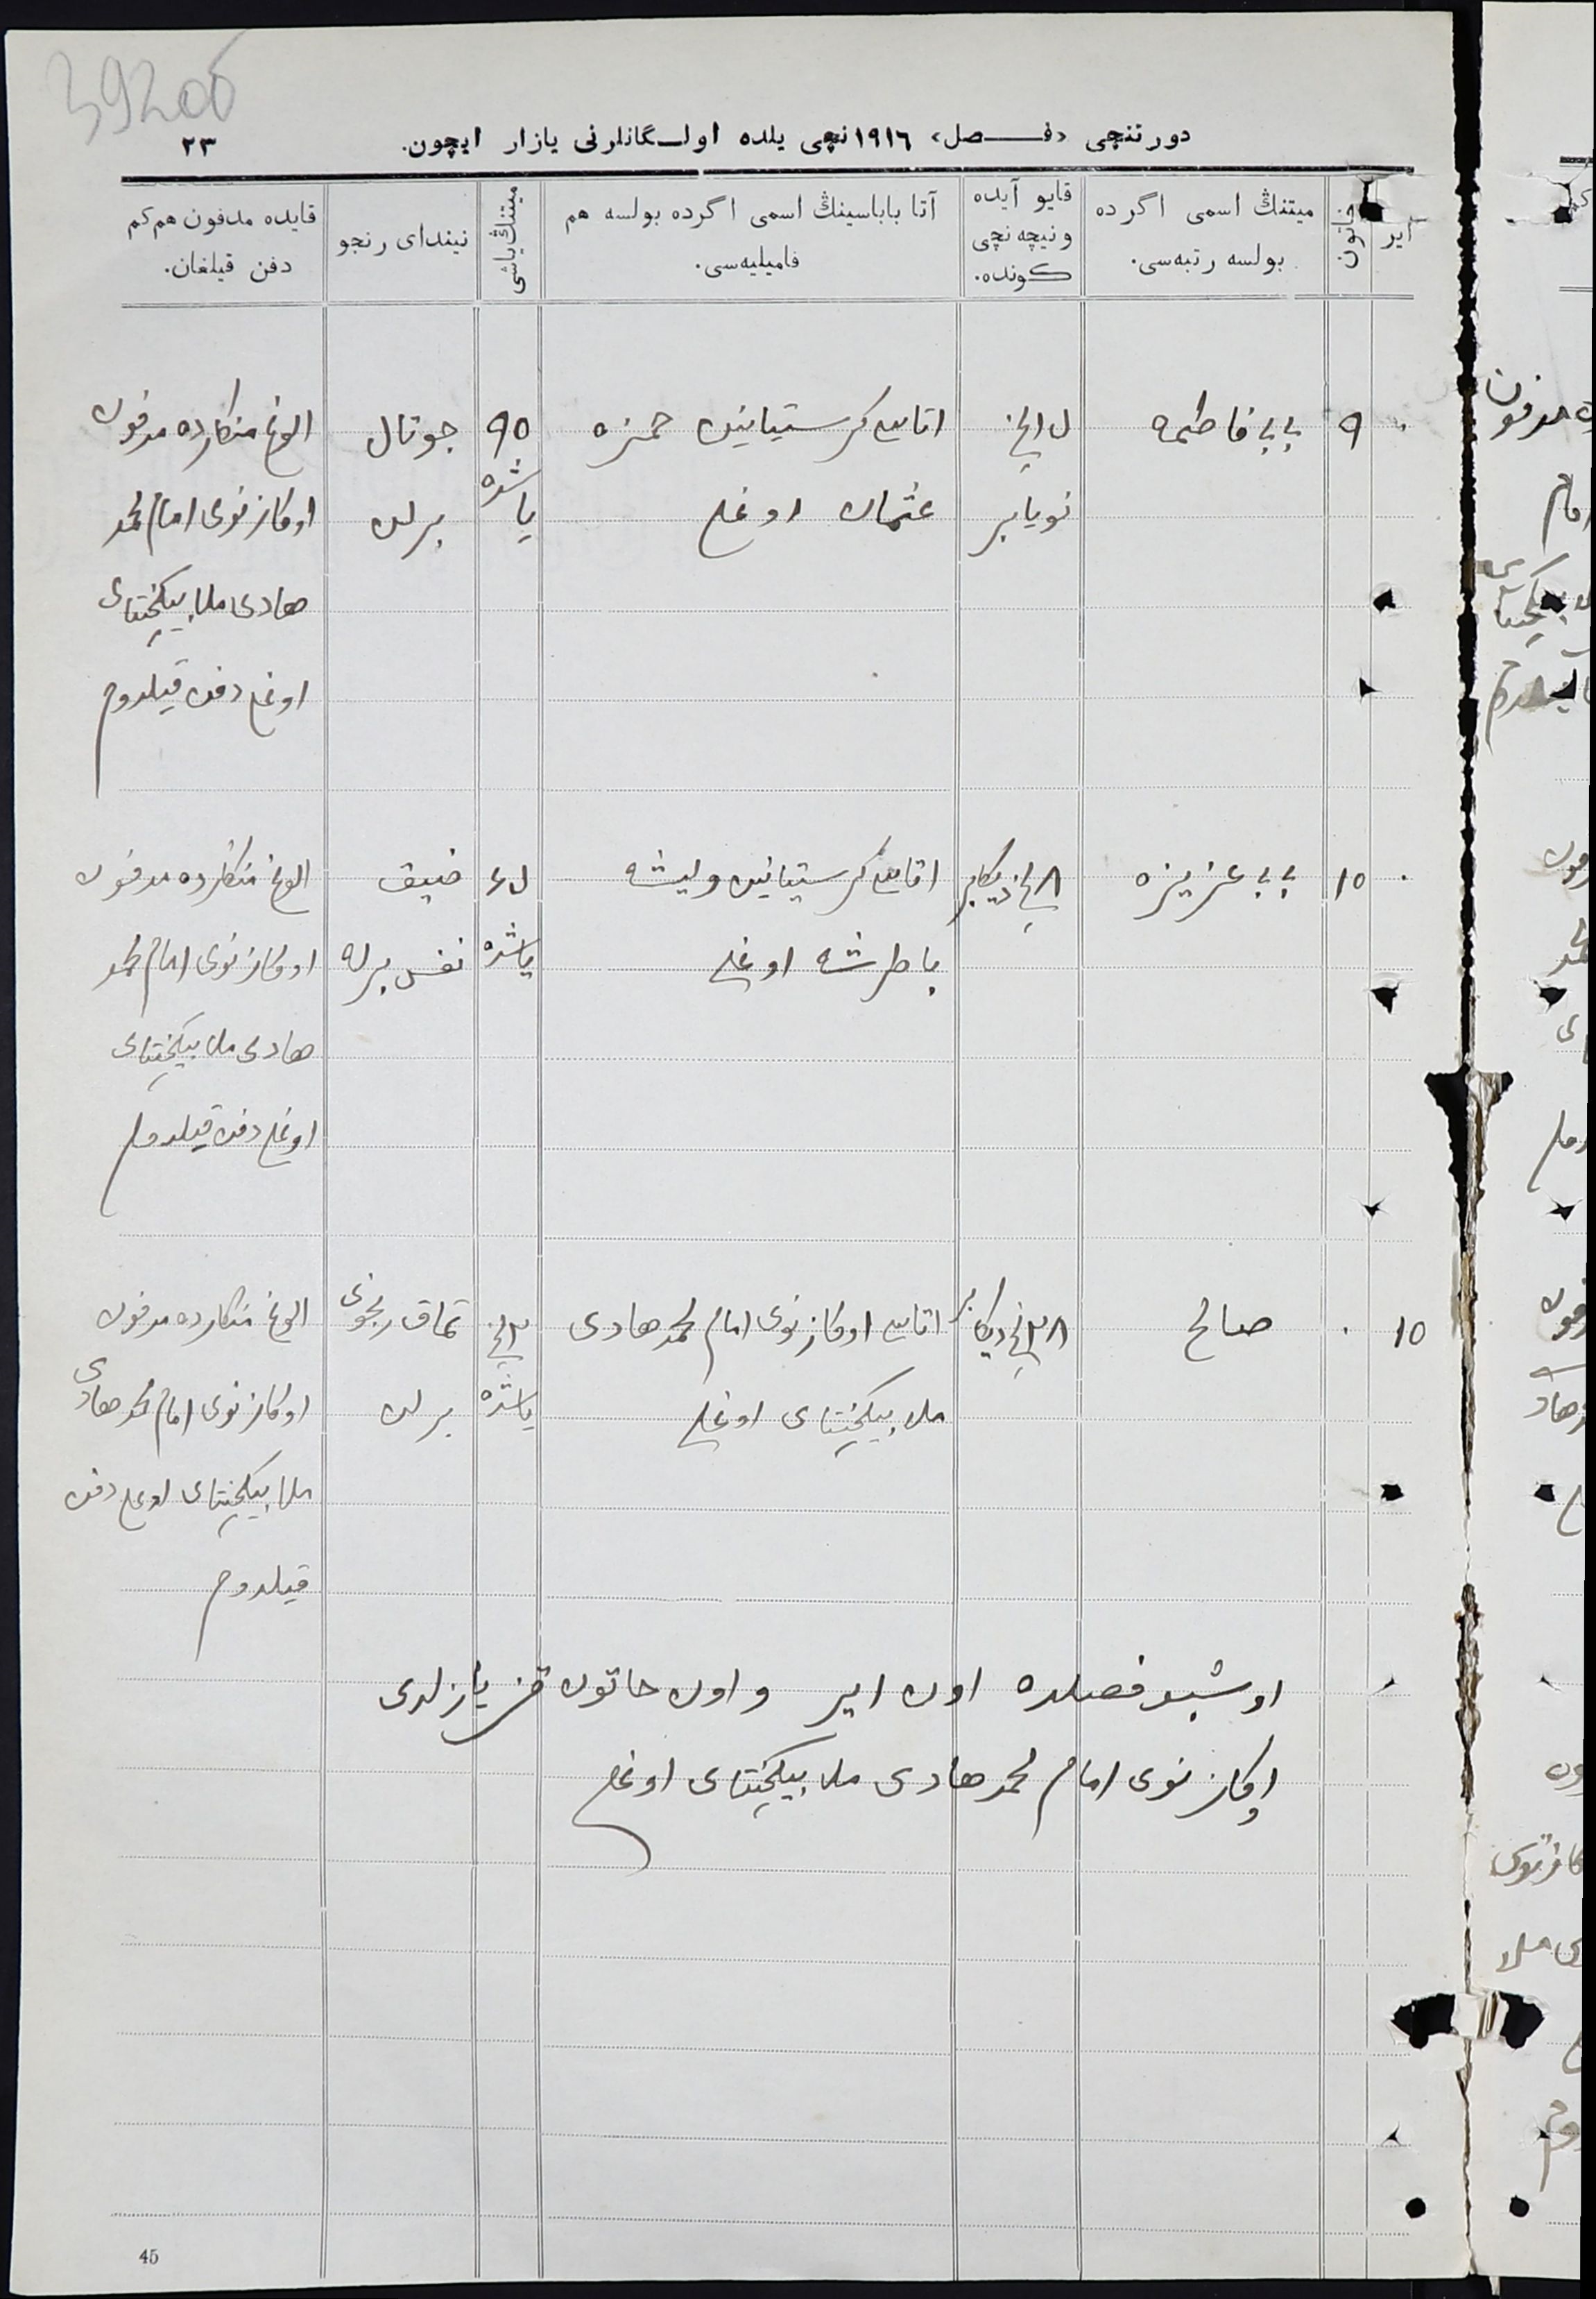 392об
٢٣
دورتنچی «فـــصل» ١٩١٦نچی یلده اولـگانلرنی یازار ایچون.
ایر
خاتون
میتنڭ اسمی اگرده
بولسه رتبه‌سی.
قایو آیده
ونیچه نچی
کونده.
آتا باباسینڭ اسمی اگرده بولسه هم
فامیلیه‌سی.
میتنڭ یاشی
نیندای رنجو
قایده مدفون هم کم
دفن قیلغان.
٩ بی بی فاطمه
نویابر
اتاسی کرستیانین حمزه
عثمان اوغلی
٩٥
یاشده
جوتال
برلن
الوغ منکارده مدفون
اوکازنوی امام محمد
هادی ملا بیکچنتای
اوغلی دفن قیلدوم
١٥ بی بی عزیزه
٨ نچی دیکابر
اتاسی کرستیانین ولیشه
باطرشه اوغلی
یاشده
ضیق
نفس برله
الوغ منکارده مدفون
اوکازنوی امام محمد
هادی ملا بیکچنتای
اوغلی دفن قیلدوم
١٥ صالح
دیکابر
اتاسی اوکازنوی امام محمد هادی
ملا بیکچنتای اوغلی
یاشده
تماق رنجوی
برلن
الوغ منکارده مدفون
اوکازنوی امام محمد هادی
ملا بیکچنتای اوغلی دفن
قیلدوم
اوشبو فصلده اون ایر و اون خاتون قز یازلدی
اوکازنوی امام محمد هادی ملا بیکچنتای اوغلی
45